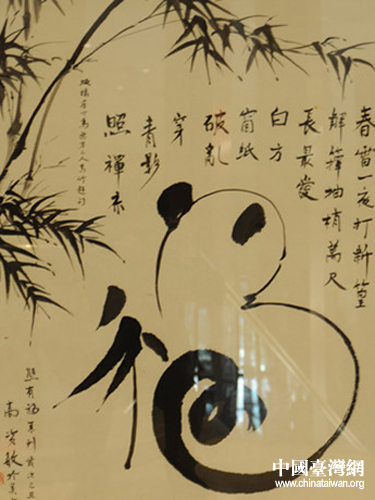 春雷一夜打新篁
解籜抽梢萬尺
長最愛
白方
窗紙
破亂
穿
青影
照禪床
福
熊有福
高資敏
中國臺灣網
www.chinataiwan.org